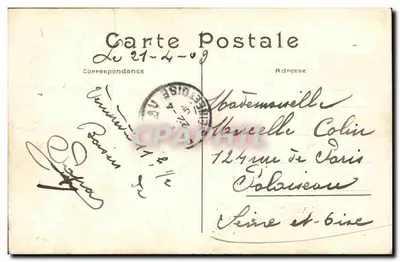 Carte Postale
Le 21-4-09
Correspondance
Adresse
Baisers
Mademoiselle
Marcelle Colin
124 rue de Paris
Palaiseau
Seine et-Oise
SEINE ET OISE
CARTAPRO